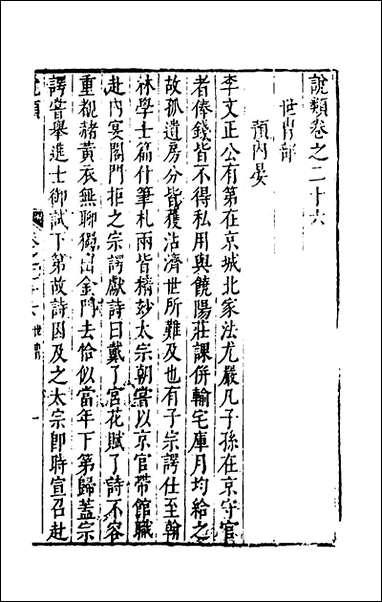 說類卷之二十六
世胄部
預內晏
李文正公有第在京城北家法尤嚴凡子孫在京守官
者俸錢皆不得私用與饒陽莊課併輸宅庫月均給之
故孤遺房分皆獲沾濟世所難及也有子宗諤仕至翰
林學士篇什筆札兩皆精妙太宗朝嘗以京官帶館職
赴內宴閤門拒之宗諤獻詩曰戴了宮花賦了詩不容
重覩赭黃衣無聊獨出金門去恰似當年下第歸蓋宗
諤音舉進士御試下第故詩因及之太宗即時宣召赴